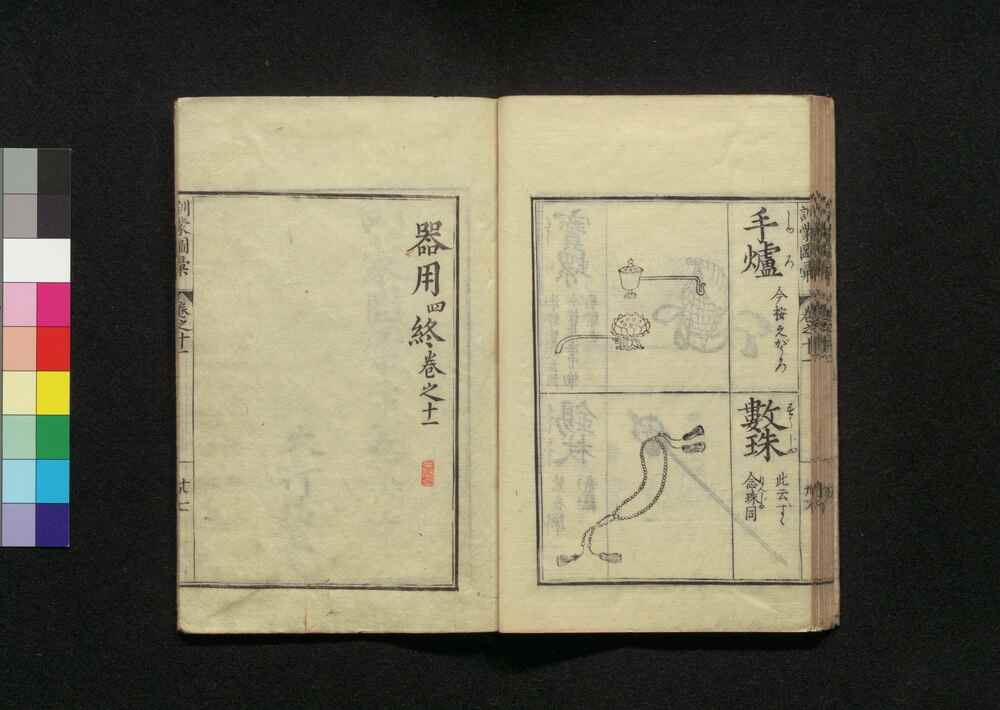 手爐
しゆろ
今按えがうろ
數珠
此云ずゞ
念珠同
訓蒙圖彙
卷之十一
器用四終卷之十一
訓蒙圖彙
卷之十一
廿七